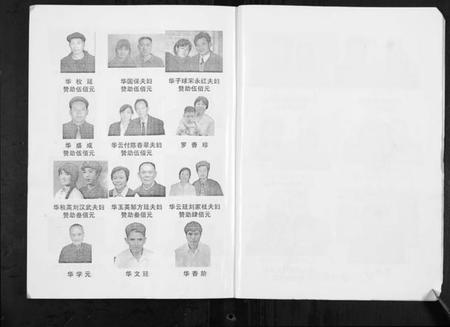 华枚冠
赞助伍佰元
华国保夫妇
赞助伍佰元
华子球宋永红夫妇
赞助伍佰元
华盛成
赞助伍佰元
华云付陈香翠夫妇
赞助伍佰元
罗香珍
华独英刘汉武夫妇
赞助叁佰元
华玉英邹方廷夫妇
赞助叁佰元
华云廷刘家桂夫妇
赞助肆佰元
华学元
华文冠
华香阶